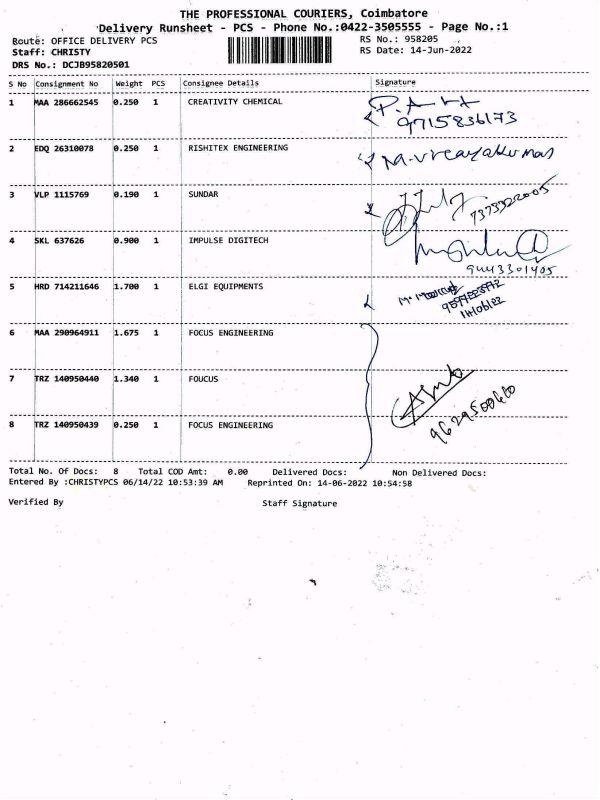 THE PROFESSIONAL COURIERS, Coimbatore
Delivery Runsheet - PCS - Phone No.:0422-3505555 - Page No.:1
Route: OFFICE DELIVERY PCS RS No.: 958205
Staff: CHRISTY RS Date: 14-Jun-2022
DRS No.: DCJB95820501
S No Consignment No Weight PCS Consignee Details Signature
1 MAA 286662545 0.250 1 CREATIVITY CHEMICAL
9715836173
2 EDQ 26310078 0.250 1 RISHITEX ENGINEERING
3 VLP 1115769 0.190 1 SUNDAR 7373322005
4 SKL 637626 0.900 1 IMPULSE DIGITECH
9443301405
5 HRD 714211646 1.700 1 ELGI EQUIPMENTS
6 MAA 290964911 1.675 1 FOCUS ENGINEERING
7 TRZ 140950440 1.340 1 FOUCUS
8 TRZ 140950439 0.250 1 FOCUS ENGINEERING
Total No. Of Docs: 8 Total COD Amt: 0.00 Delivered Docs: Non Delivered Docs:
Entered By :CHRISTYPCS 06/14/22 10:53:39 AM Reprinted On: 14-06-2022 10:54:58
Verified By Staff Signature